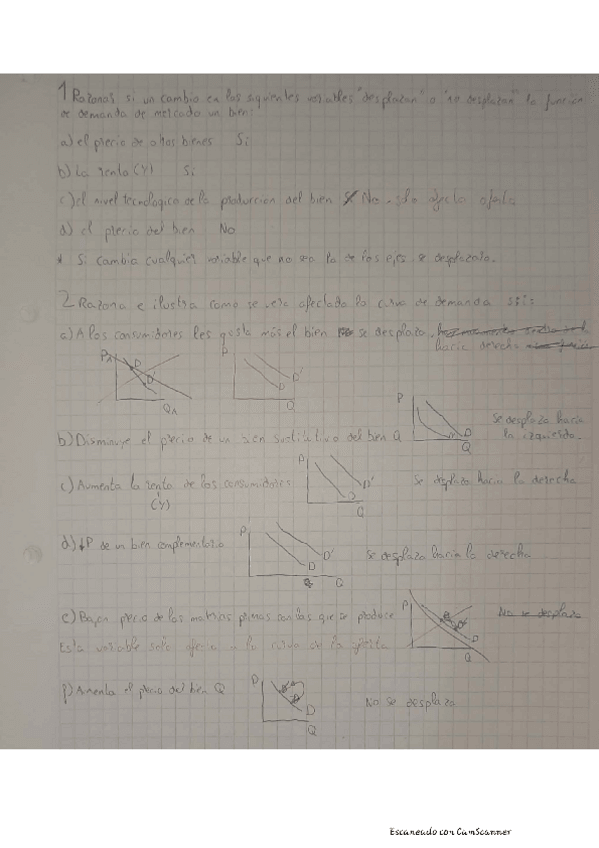 1 Razona si un cambio en las siguientes variables "desplazan" o "no desplazan" la función
de demanda de mercado un bien:
a) el precio de otros bienes Si
b) La renta (Y) Si
c) el nivel tecnologico de la produccion del bien No, solo afecta oferta
d) el precio del bien No
* Si cambia cualquier variable que no sea la de los ejes, se desplazara.
2 Razona e ilustra como se vera afectada la curva de demanda si:
a) A los consumidores les gusta más el bien se desplaza
hacia derecha
PA D D' QA
P D D' Q
b) Disminuye el precio de un bien sustitutivo del bien Q
P D Q
Se desplaza hacia
la izquierda.
c) Aumenta la renta de los consumidores
(Y)
P D D' Q
Se desplaza hacia la derecha
d) ↓P de un bien complementario
P D D' Q
Se desplaza hacia la derecha
e) Bajan precio de las matrias primas con las que se produce
P D Q
No se desplaza
Esta variable solo afecta a la curva de la oferta
f) Aumenta el precio del bien Q
P D Q
No se desplaza
Escaneado con CamScanner